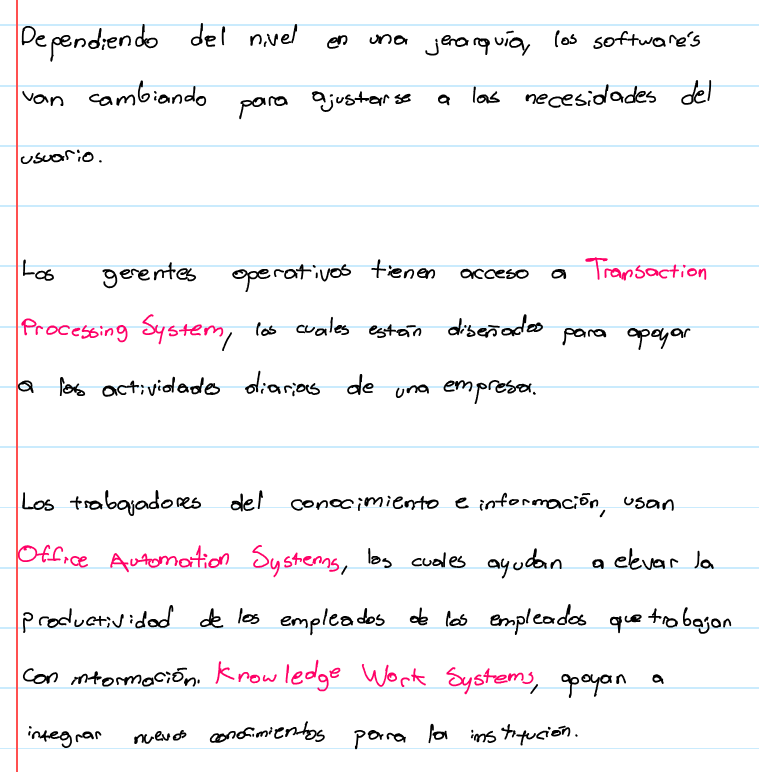 Dependiendo del nivel en una jerarquía, los software's
van cambiando para ajustarse a las necesidades del
usuario.
Los gerentes operativos tienen acceso a Transaction
Processing System, los cuales están diseñados para apoyar
a las actividades diarias de una empresa.
Los trabajadores del conocimiento e información, usan
Office Automation Systems, los cuales ayudan a elevar la
productividad de los empleados de los empleados que trabajan
con información. Knowledge Work Systems, apoyan a
integrar nuevos conocimientos para la institución.